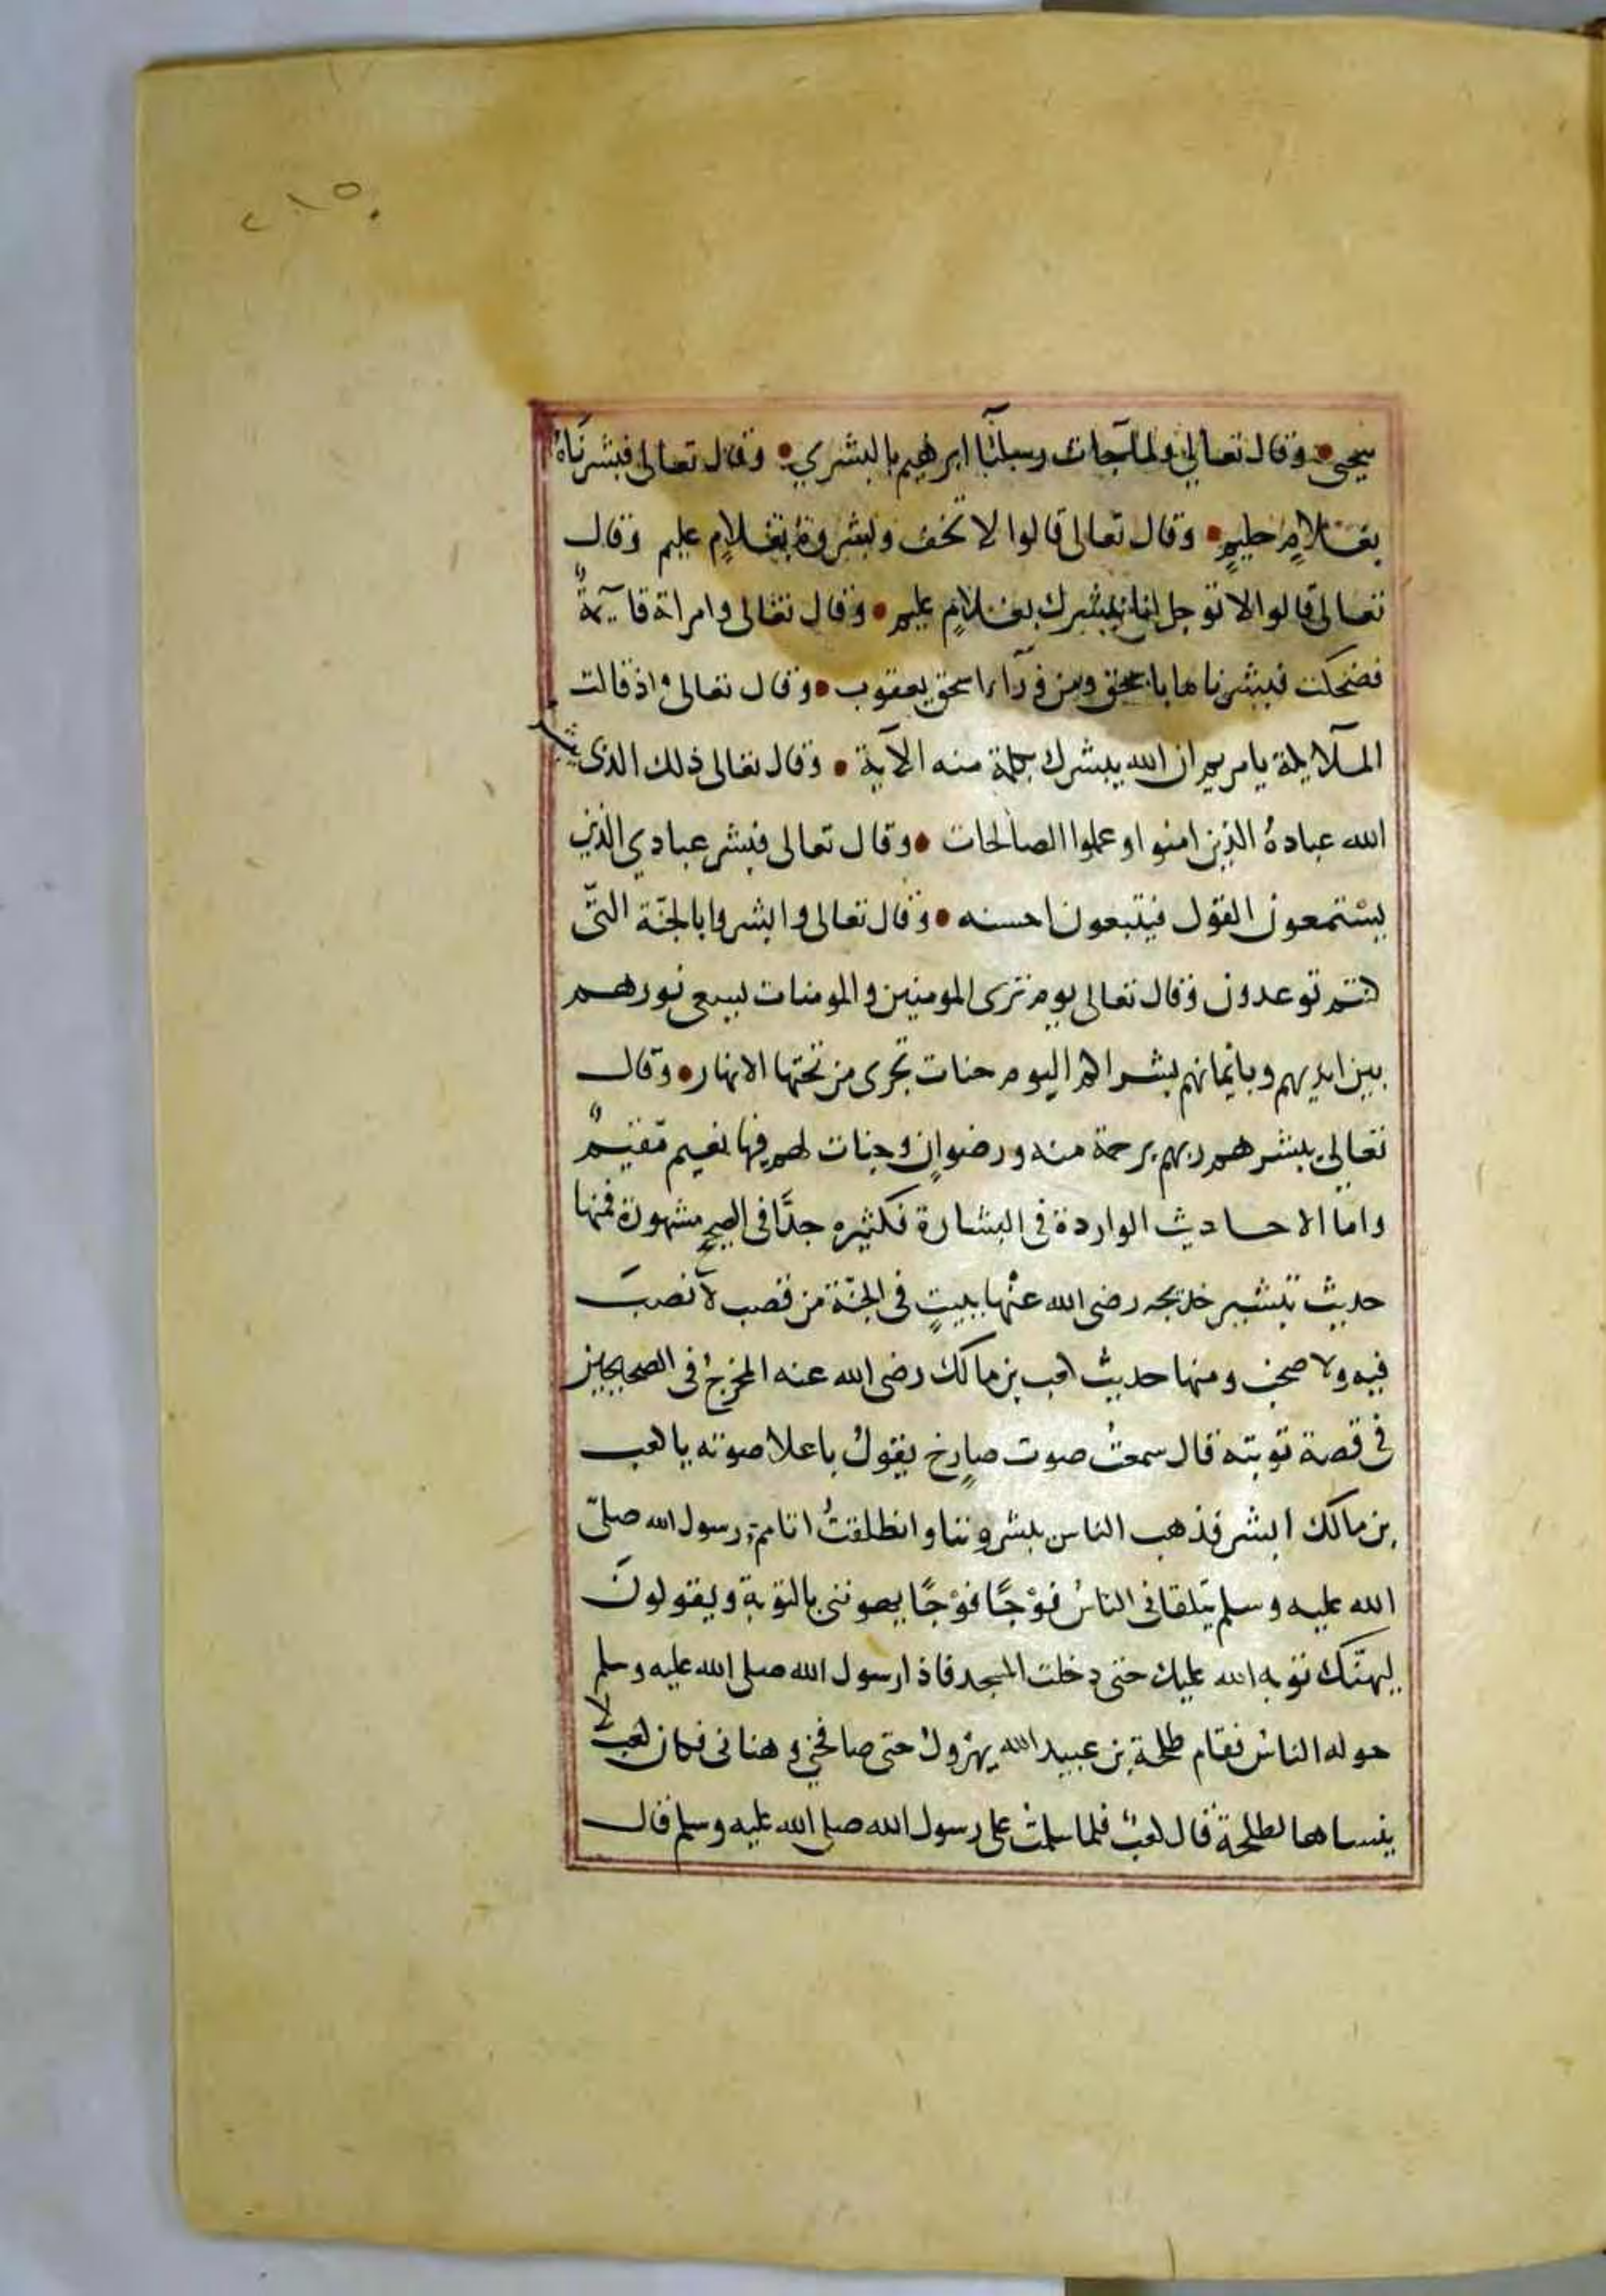 ٢١٥
بيحيى • وقال تعالى ولما جات رسلنا ابرهيم بالبشري • وقال تعالى فبشرناه
بغلامٍ حليمٍ • وقال تعالى قالوا لا تخف وبشروه بغلامٍ عليم وقال
تعالى قالوا لا توجل انا نبشرك بغلامٍ عليم • وقال تعالى وامراته قايمةٌ
فضحكت فبشرناها باسحق ومن ورآء اسحق يعقوب • وقال تعالى واذ قالت
الملآيكة يا مريم ان الله يبشرك بكلمة منه الآية • وقال تعالى ذلك الذى يبشر
الله عبادهُ الذين امنوا وعملوا الصالحات • وقال تعالى فبشر عبادي الذين
يستمعون القول فيتبعون احسنه • وقال تعالى وابشروا بالجنّة التّى
كنتم توعدون وقال تعالى يوم ترى المومنين والمومنات يسعى نورهم
بين ايديهم وبايمانهم بشراكم اليوم جنات تجرى من تحتها الانهار • وقال
تعالى يبشرهم ربهم برحمة منه ورضوانٍ وجنات لهم فيها نعيم مّقيمٌ
واما الاحاديث الواردة فى البشارة فكثيره جدًّا فى الصحيح مشهورة فمنها
حديث تبشير خديجه رضى الله عنْها ببيتٍ فى الجنّة من قصب لا نصبَ
فيه ولا صخب ومنها حديث كعب بن مالك رضى الله عنه المخرجُ فى الصحيحين
فى قصة توبته قال سمعتُ صوت صارخٍ يقولُ باعلا صوته يا كعب
بن مالك ابشر فذهب الناس يبشروننا وانطلقتُ اتامم رسول الله صلّى
الله عليه وسلم يتلقانى الناسُ فوْجًا فوْجًا يهنوننى بالتوبة ويقولونَ
ليهنّك توبه الله عليك حتى دخلت المسجد فاذا رسول الله صلى الله عليه وسلم
حوله الناسُ فقام طلحة بن عبيد الله يهرْولُ حتى صافحنى وهنانى فكان كعبٌ لا
ينساها لطلحة قال كعبٌ فلما سلمتُ على رسول الله صلى الله عليه وسلم قال